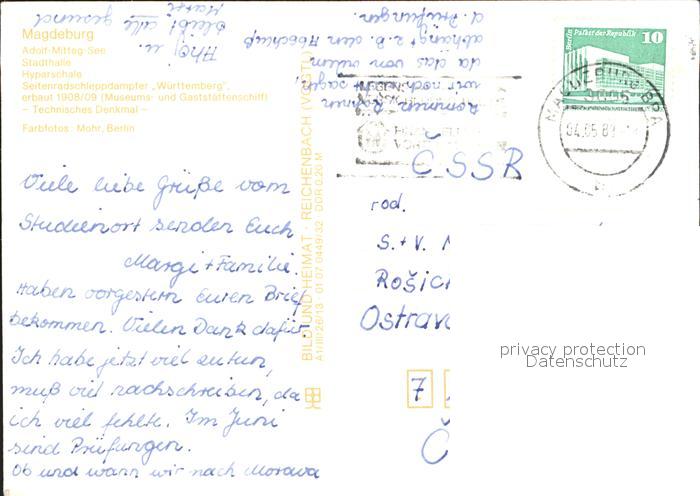 Magdeburg
Adolf-Mittag-See
Stadthalle
Hyparschale
Seitenradschleppdampfer „Württemberg",
erbaut 1908/09 (Museums- und Gaststättenschiff)
– Technisches Denkmal –
Farbfotos: Mohr, Berlin
Viele liebe Grüße vom
Studienort senden Euch
Margi + Familie.
Haben vorgestern Euren Brief
bekommen. Vielen Dank dafür.
Ich habe jetzt viel zu tun,
muß viel nachschreiben, da
ich viel fehlte. Im Juni
sind Prüfungen.
Ob und wann wir nach Morava
kommen können,
wir noch nicht sagen,
da das von vielem
abhängt z.B. den Abschluß
d. Prüfungen.
Ahoj u.
bleibt alle gesund
BILD UND HEIMAT · REICHENBACH (VOGTL)
A1/III/26/13 01 07 0449/32 DDR 0,20 M
Berlin Palast der Republik
10
MAGDEBURG BPA
ČSSR
rod.
S. + V.
Rošic
Ostrava
7
Č
privacy protection
Datenschutz